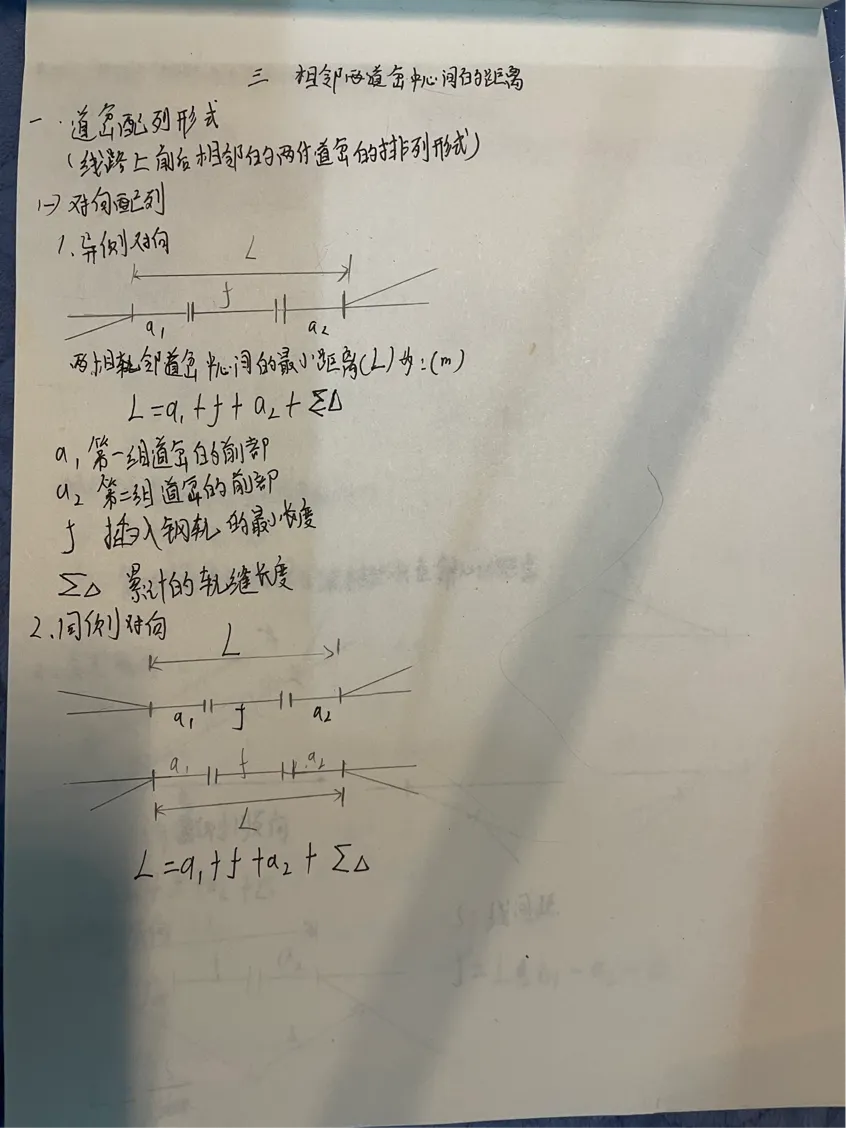 三 相邻两道岔中心间的距离
一. 道岔配列形式
(线路上前后相邻的两付道岔的排列形式)
(一) 对向配列
1. 异侧对向
L
f
a₁ a₂
两相轨邻道岔中心间的最小距离(L)为:(m)
L=a₁+f+a₂+ΣΔ
a₁ 第一组道岔的前部
a₂ 第二组道岔的前部
f 插入钢轨的最小长度
ΣΔ 累计的轨缝长度
2. 同侧对向
L
a₁ f a₂
a₁ f a₂
L
L=a₁+f+a₂+ΣΔ